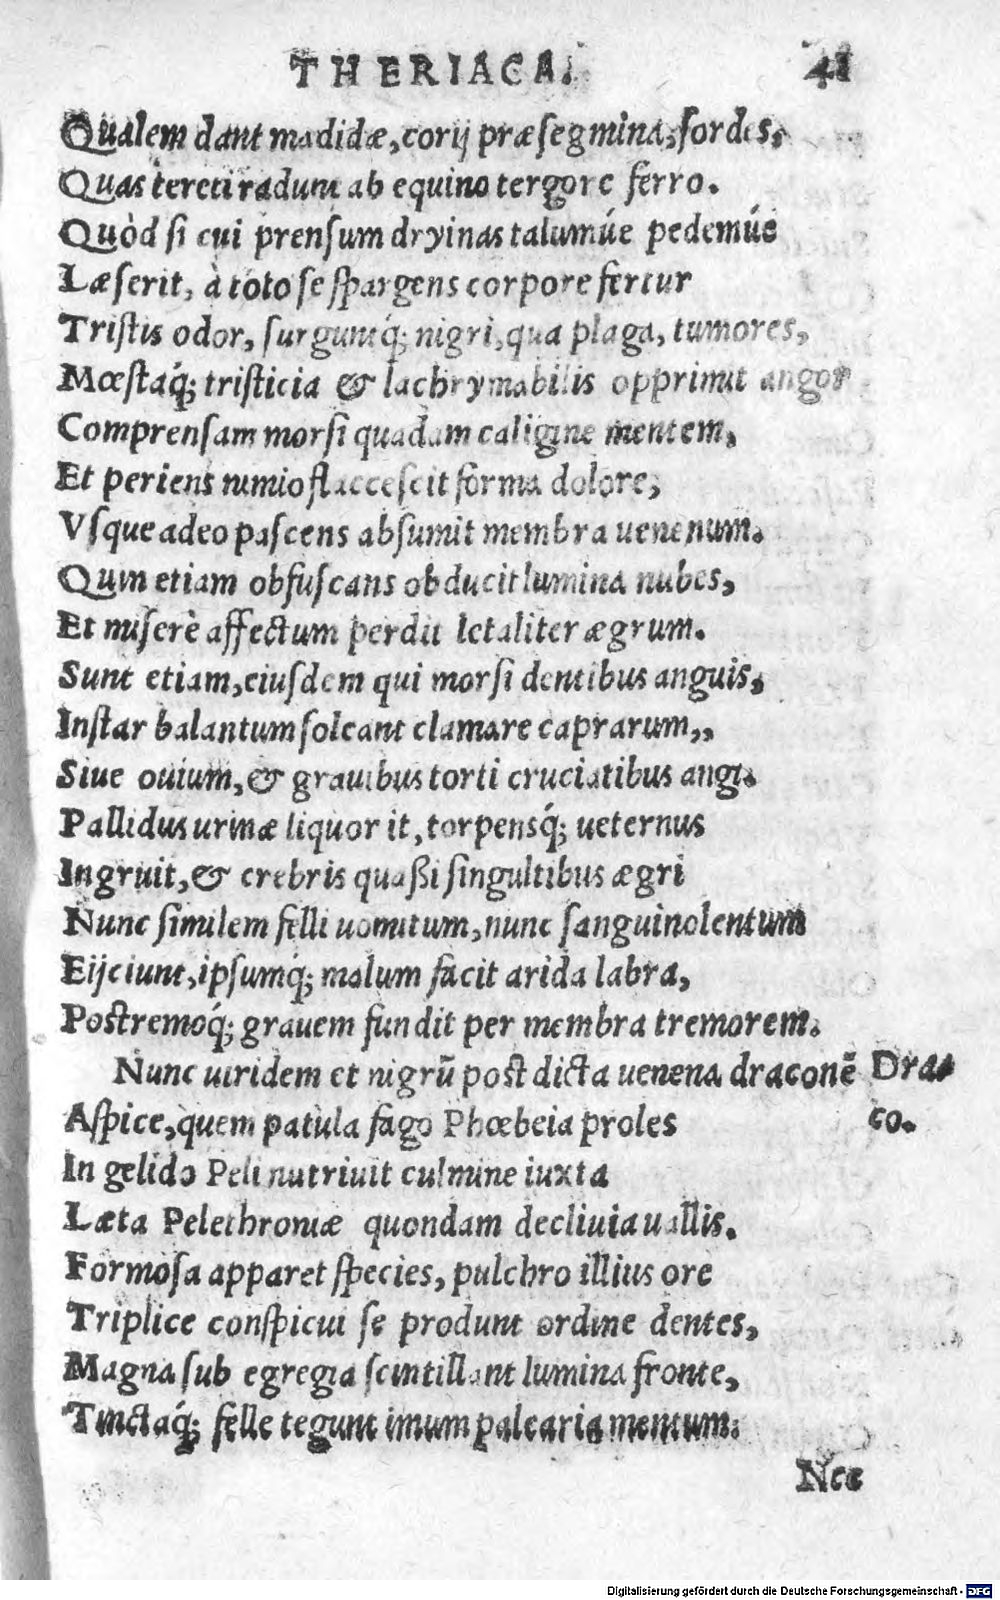 THERIACA. 41
Qualem dant madidæ, corij præsegmina, sordes,
Quas tereti radunt ab equino tergore ferro.
Quòd si cui prensum dryinas talumúe pedemúe
Læserit, à toto se spargens corpore fertur
Tristis odor, surguntq́; nigri, qua plaga, tumores,
Mœstaq́; tristicia & lachrymabilis opprimit angor
Comprensam morsi quadam caligine mentem,
Et periens nimio flaccescit forma dolore,
Vsque adeo pascens absumit membra uenenum.
Quin etiam obfuscans obducit lumina nubes,
Et miserè affectum perdit letaliter ægrum.
Sunt etiam, eiusdem qui morsi dentibus anguis,
Instar balantum soleant clamare caprarum,,
Siue ouium, & grauibus torti cruciatibus angi.
Pallidus urinæ liquor it, torpensq́; ueternus
Ingruit, & crebris quaßi singultibus ægri
Nunc similem felli uomitum, nunc sanguinolentum
Eijciunt, ipsumq́; malum facit arida labra,
Postremoq́; grauem fundit per membra tremorem.
Nunc uiridem et nigrū post dicta uenena draconē Dra-
Aspice, quem patula fago Phœbeia proles co.
In gelido Peli nutriuit culmine iuxta
Læta Pelethroniæ quondam decliuia uallis.
Formosa apparet species, pulchro illius ore
Triplice conspicui se produnt ordine dentes,
Magna sub egregia scintillant lumina fronte,
Tinctaq́; felle tegunt imum palearia mentum.
Nec
Digitalisierung gefördert durch die Deutsche Forschungsgemeinschaft - DFG